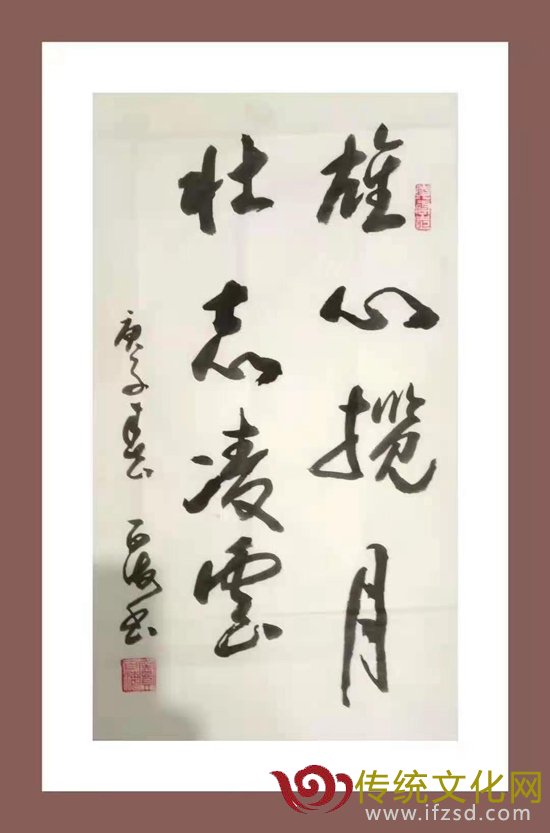 雄心揽月
壮志凌雲
庚子春
百海书
传统文化网
www.ifzsd.com